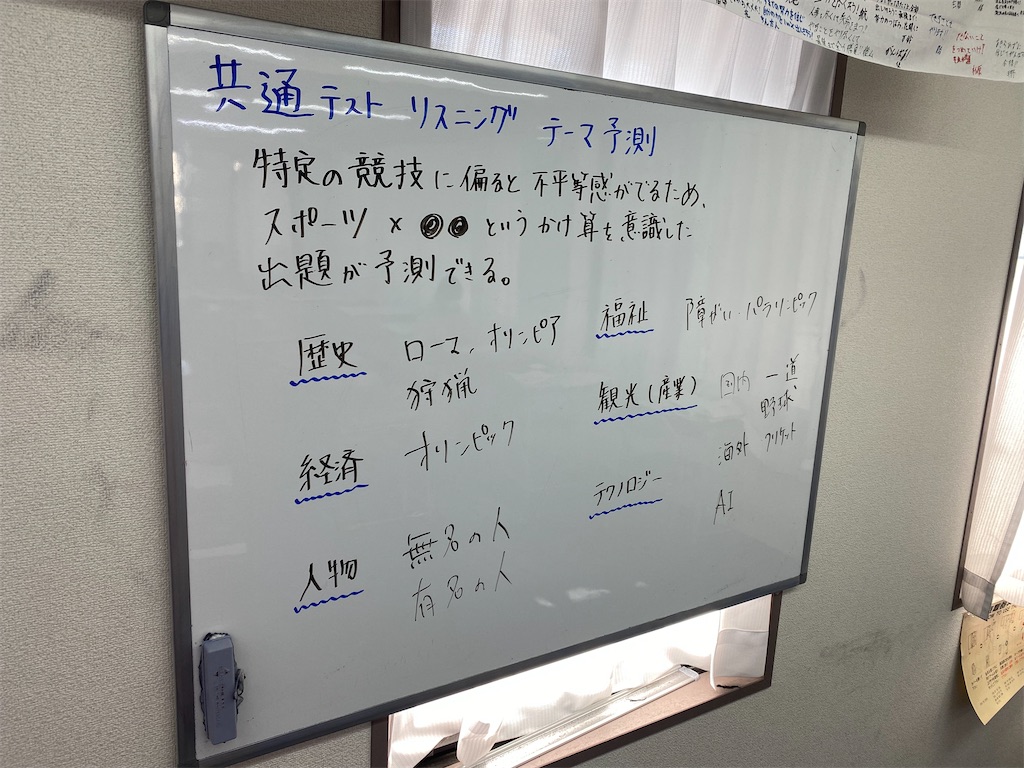 共通テスト リスニング テーマ予測
特定の競技に偏ると不平等感がでるため、
スポーツ × ●● というかけ算を意識した
出題が予測できる。
歴史 ローマ、オリンピア
狩猟
経済 オリンピック
人物 無名の人
有名の人
福祉 障がい・パラリンピック
観光(産業) 国内 一道
野球、
海外 クリケット
テクノロジー
AI